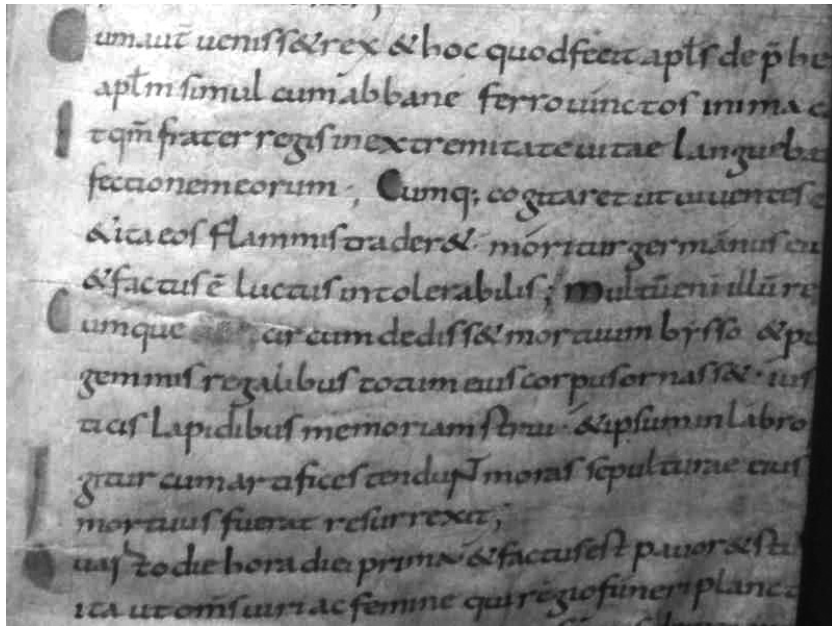 Cum aut̄ ueniss& rex & hoc quod fecit apl̄s de p̄ be
apl̄m simul cum abbane ferro uinctos in ima c
Itqm̄ frater regis in extremitate uitae languebat
fectionem eorum; Cumq; cogitaret ut uiuentes e
& ita eos flammis trader& · moritur germanus eiu
& factus ē luctus intolerabilis; Multū eni illū re
Cumque circumdediss& mortuum bysso & pu
gemmis regalibus totum eius corpus ornass& · ius
ticis lapidibus memoriam strui · & ipsum in labro
Igitur cum artifices tendunt moras sepulturae eius
mortuus fuerat resurrexit;
uarto die hora diei prima & factus est pauor & stu
ita ut om̄s uiri ac femine qui regio funeri planct